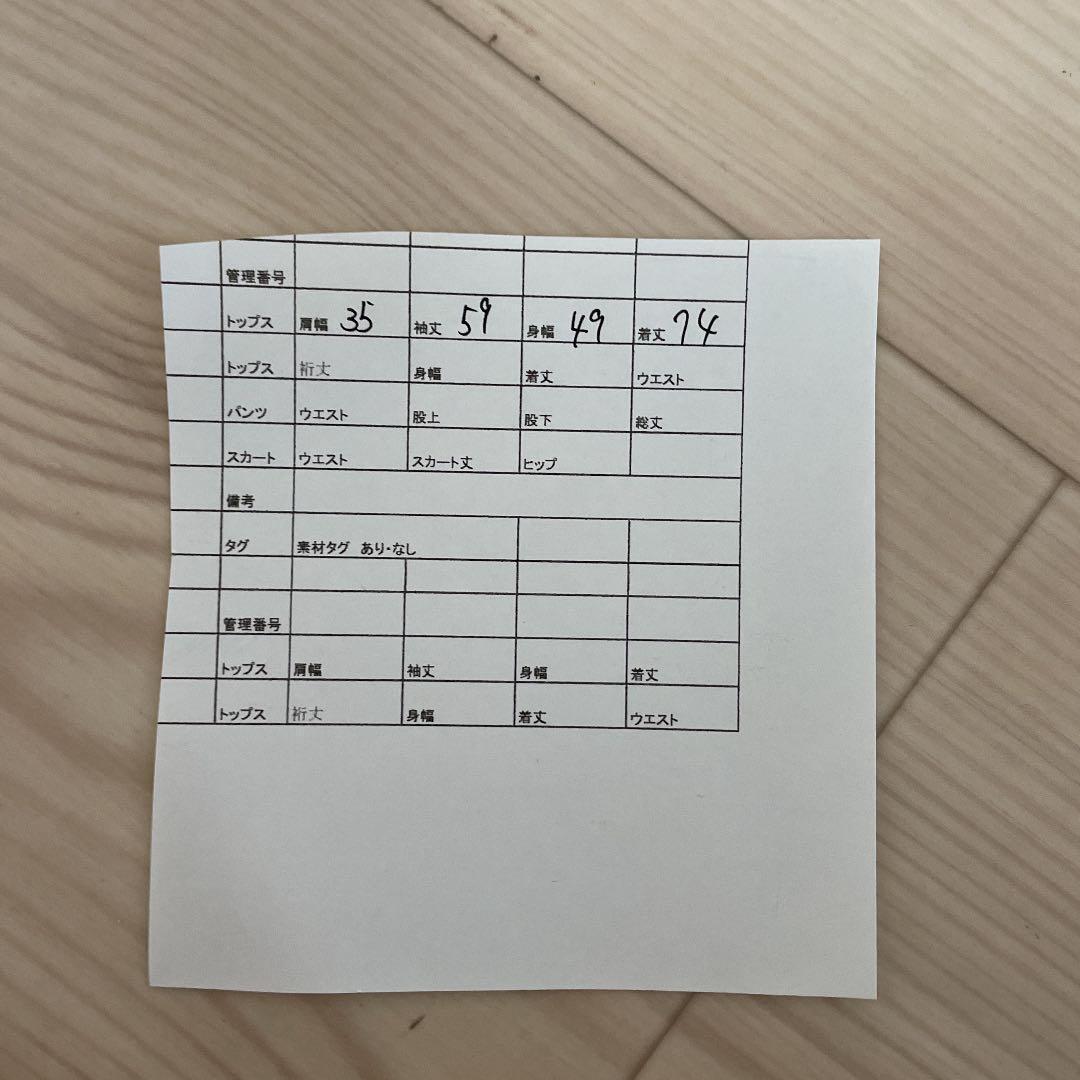 管理番号
トップス 肩幅 35 袖丈 59 身幅 49 着丈 74
トップス 裄丈 身幅 着丈 ウエスト
パンツ ウエスト 股上 股下 総丈
スカート ウエスト スカート丈 ヒップ
備考
タグ 素材タグ あり・なし
管理番号
トップス 肩幅 袖丈 身幅 着丈
トップス 裄丈 身幅 着丈 ウエスト